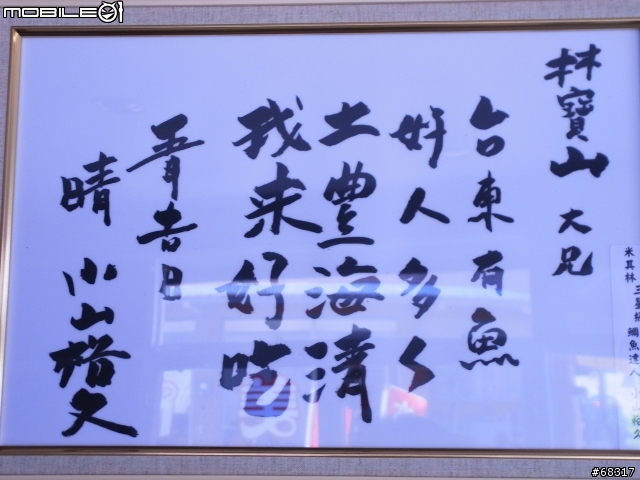 MOBILE01
林寶山 大兄
台東有魚
好人多く
土豊海清
我来好吃
五月吉日
晴 小山裕久
米其林 三星級 鯛魚達人 小山裕久
#68317